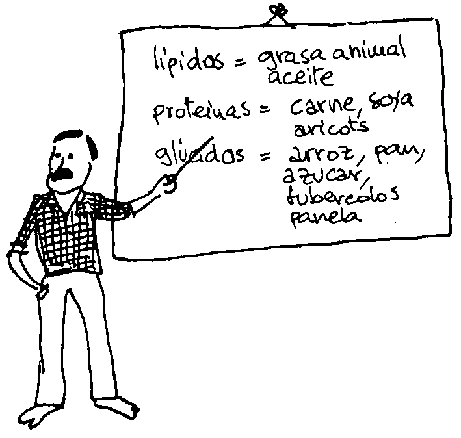 lípidos = grasa animal
aceite
proteinas = carne, soya
aricots
glúcidos = arroz, pan,
azucar,
tubercolos
panela